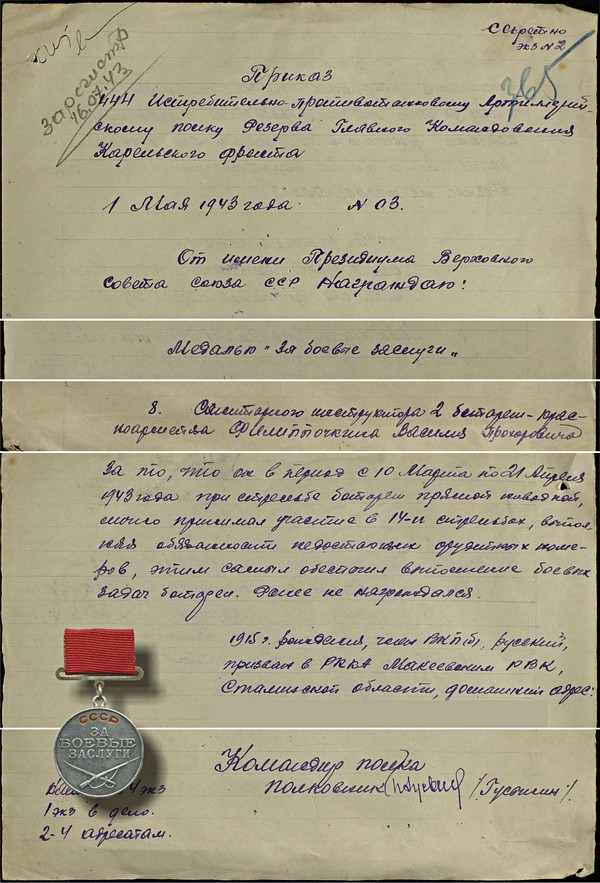 Секретно
экз №2
365
зарегистр
16.07.43
Приказ
444 Истребительно-противотанковому Артиллерий-
скому полку Резерва Главного Командования
Карельского фронта
1 Мая 1943 года №03.
От имени Президиума Верховного
Совета союза ССР Награждаю:
Медалью "За боевые заслуги"
8. Санитарного инструктора 2 батареи - крас-
ноармейца Филипточкина Василия Прохоровича
За то, что он в период с 10 Марта по 21 Апреля
1943 года при стрельбе батареи прямой наводкой,
лично принимал участие в 14-и стрельбах, выпол-
няя обязанности недостающих орудийных номе-
ров, этим самым обеспечил выполнение боевых
задач батареи. Ранее не награждался.
1915 г. рождения, член ВКП(б), русский,
призван в РККА Макеевским РВК,
Сталинской области, домашний адрес:
СССР
ЗА
БОЕВЫЕ
ЗАСЛУГИ
Командир полка
полковник /Густишин/.
4 экз
1 экз в дело.
2-4 адресатам.